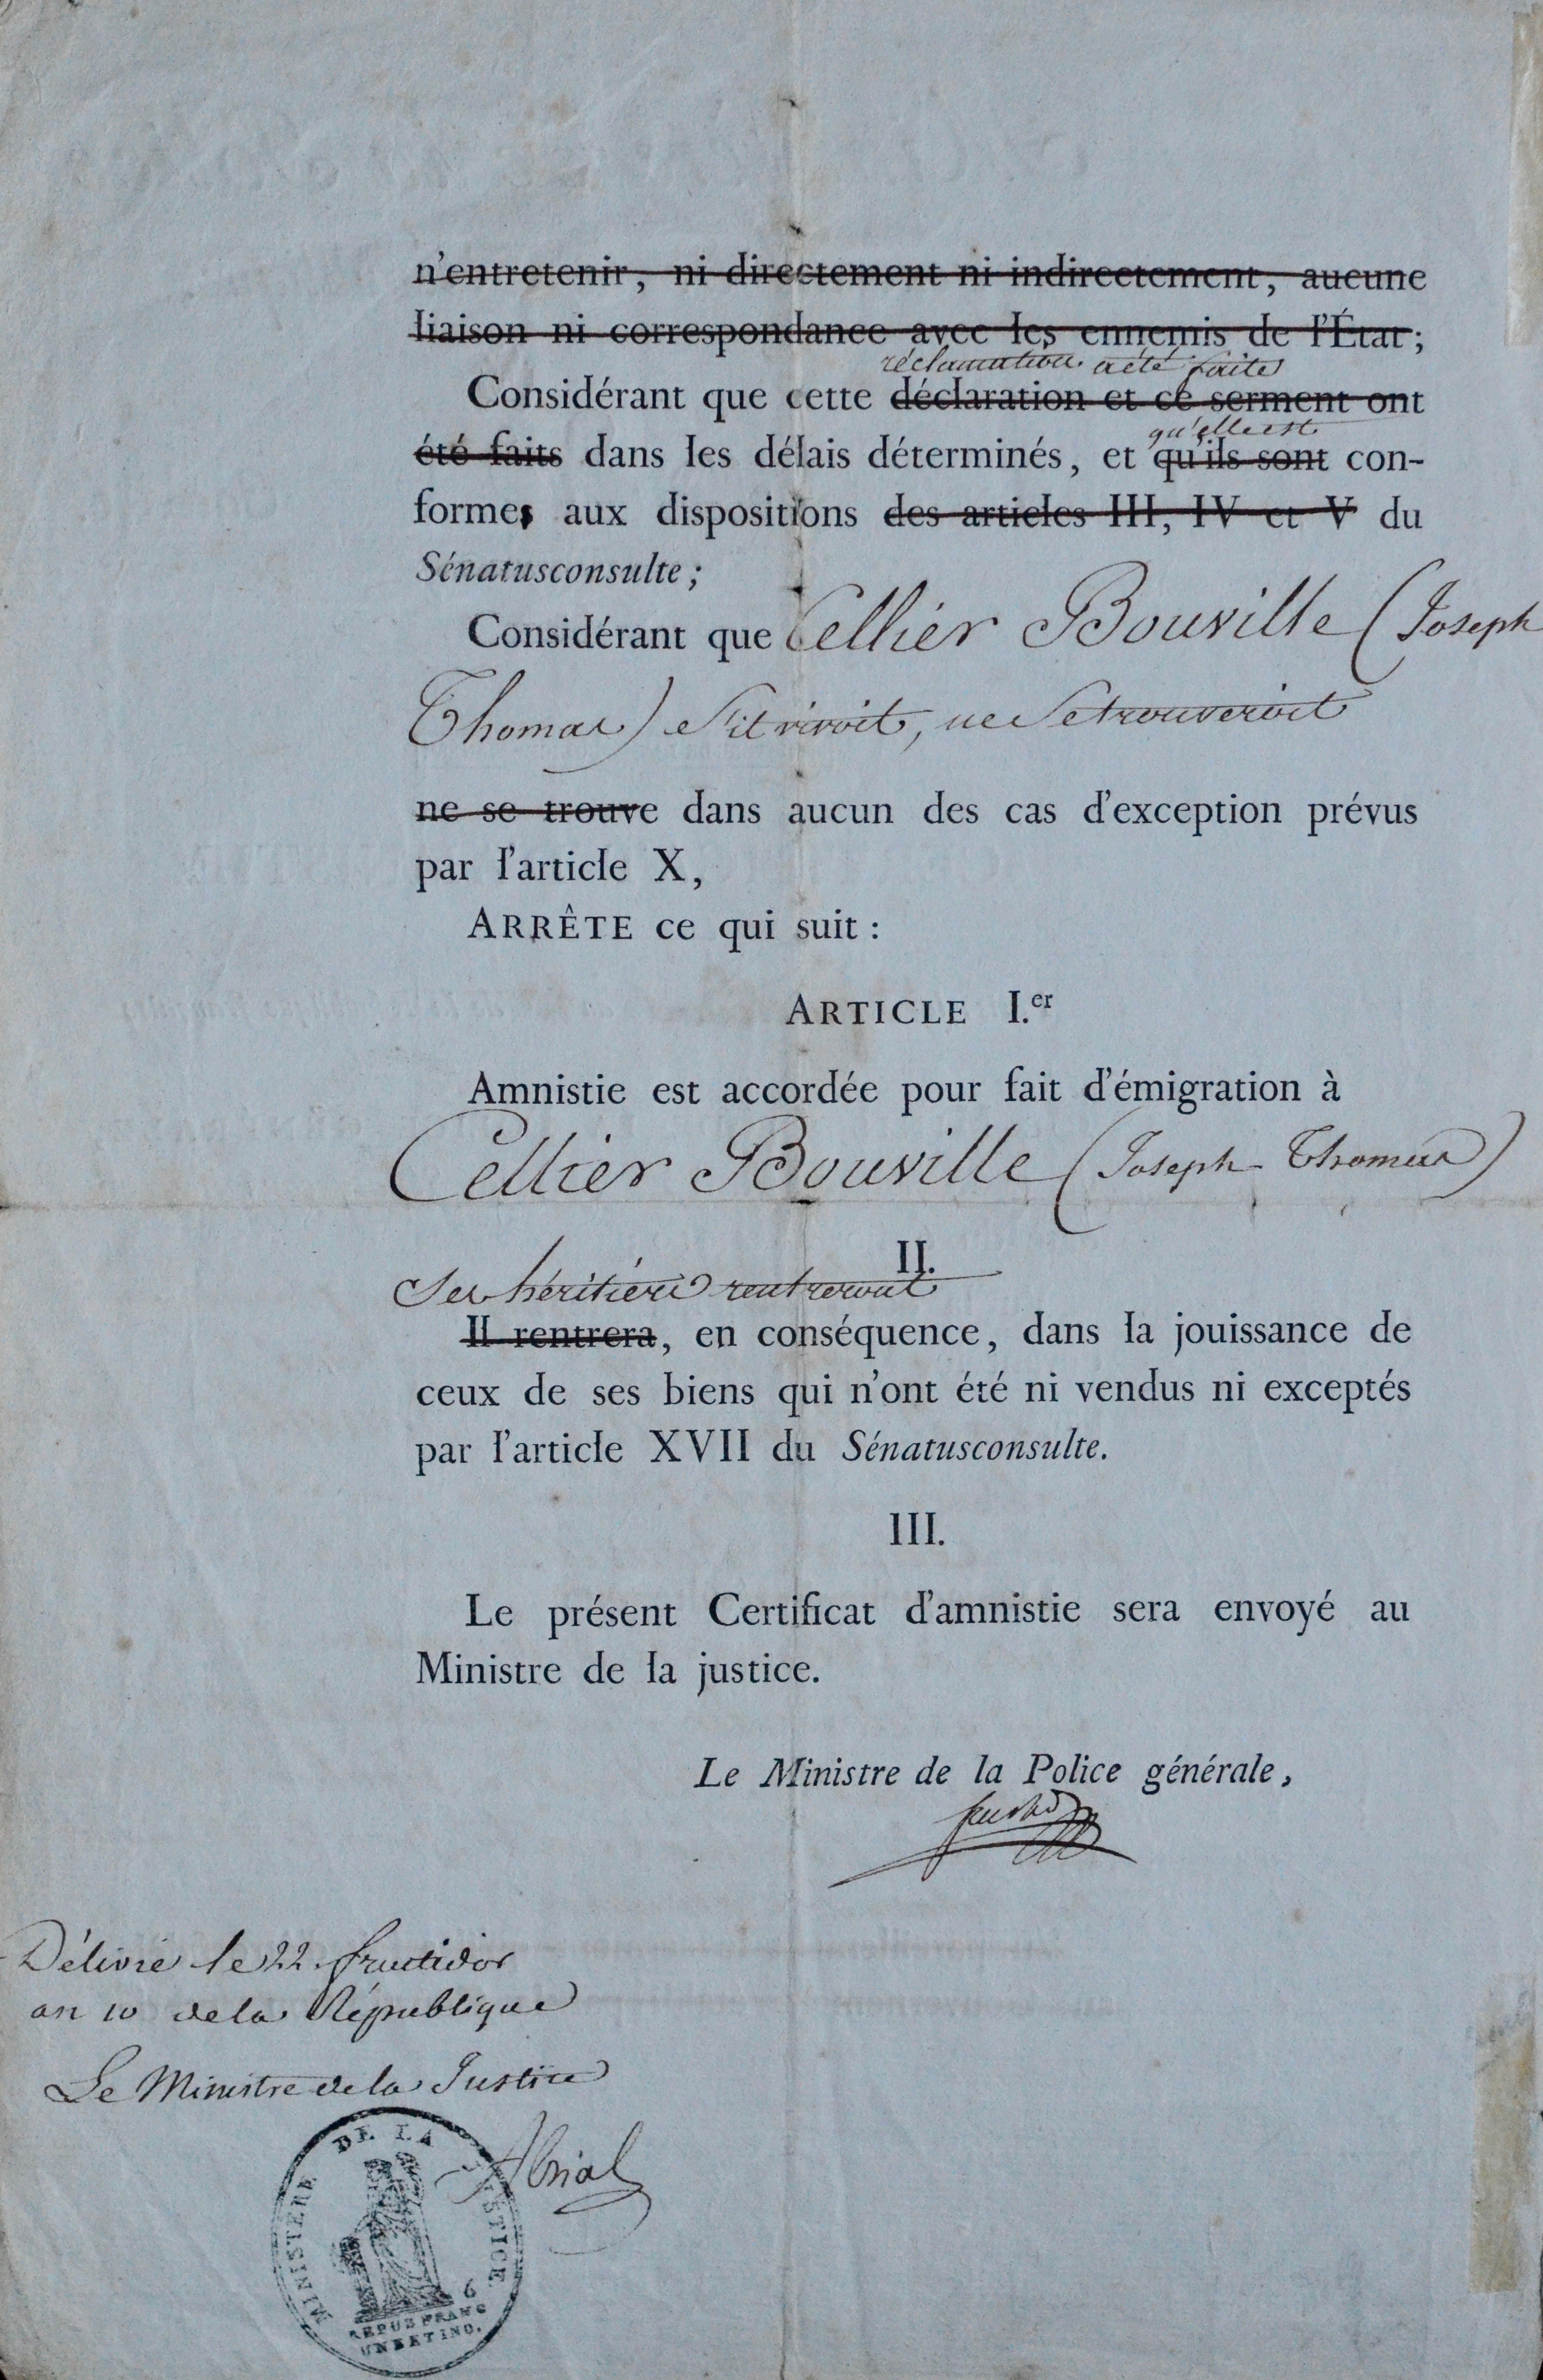 n'entretenir, ni directement ni indirectement, aucune
liaison ni correspondance avec les ennemis de l'État;
réclamation a été faite
Considérant que cette déclaration et ce serment ont
qu'elle est
été faits dans les délais déterminés, et qu'ils sont con-
formes aux dispositions des articles III, IV et V du
Sénatusconsulte;
Considérant que Cellier Bouville (Joseph
Thomas) s'il vivoit, ne se trouveroit
ne se trouve dans aucun des cas d'exception prévus
par l'article X,
ARRÊTE ce qui suit :
ARTICLE I.er
Amnistie est accordée pour fait d'émigration à
Cellier Bouville (Joseph Thomas)
II.
Ses héritiers rentreront
Il rentrera, en conséquence, dans la jouissance de
ceux de ses biens qui n'ont été ni vendus ni exceptés
par l'article XVII du Sénatusconsulte.
III.
Le présent Certificat d'amnistie sera envoyé au
Ministre de la justice.
Le Ministre de la Police générale,
Délivré le 22 fructidor
an 10 de la République
Le Ministre de la Justice
Abrial
MINISTERE DE LA JUSTICE
6
REPUB FRANC
UN ET IND.